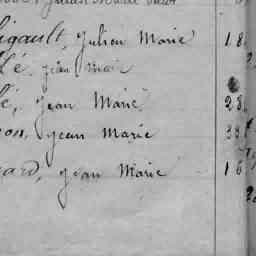 igault, Julien Marie 18
lé, Jean Marie
lé, Jean Marie 28
on, Jean Marie 38
ard, Jean Marie 16